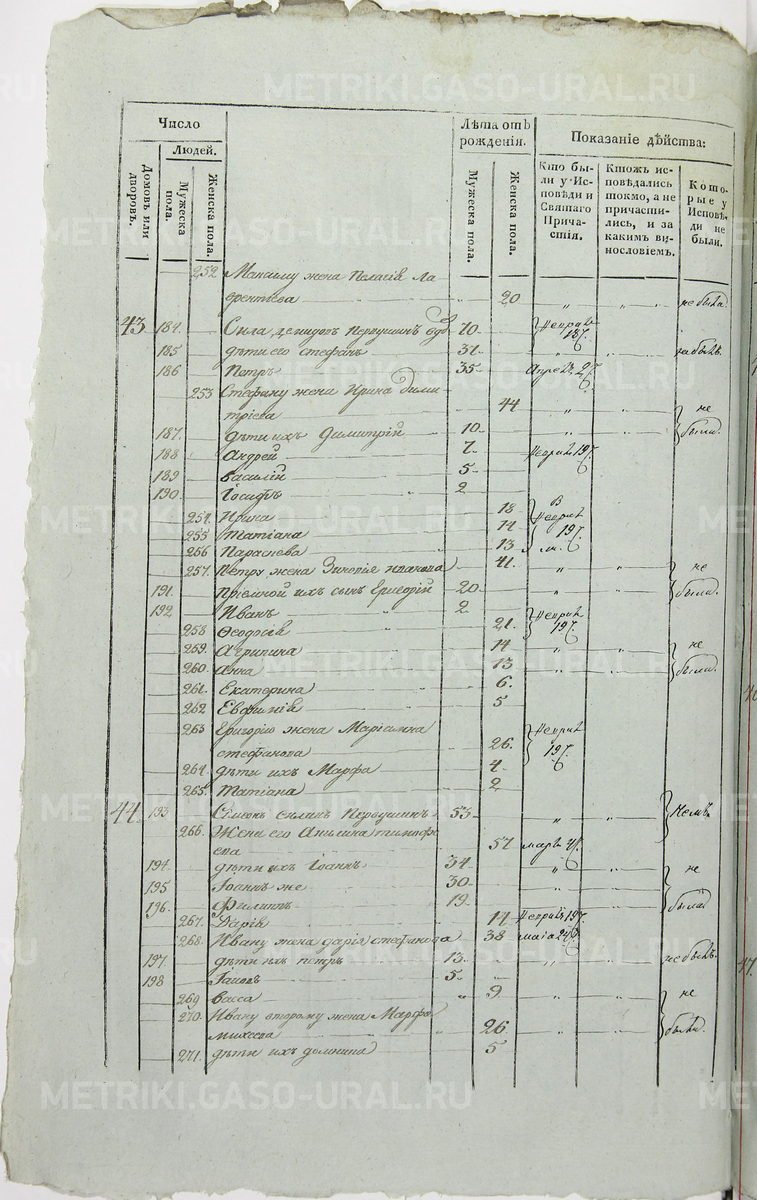 METRIKI.GASO-URAL.RU
Число
Лѣта отъ рожденія.
Показаніе дѣйства:
Людей.
Домовъ или дворовъ.
Мужеска пола.
Женска пола.
Мужеска пола.
Женска пола.
Кто были у Исповѣди и Святаго Причастія.
Ктожъ исповѣдались токмо, а не причастились, и за какимъ винословіемъ.
Которые у Исповѣди не были.
252 Максиму жена Пелагія Ла
врентьева 20 не была
43 184 Сила Демидовъ Первушинъ вдо 70
185 дѣти его Стефанъ 37 не былъ
186 Петръ 35
253 Стефану жена Ирина Дими
тріева 44 не
187 дѣти ихъ Димитрій 10 были
188 Андрей 7
189 Василій 5
190 Іосифъ 2
254 Ирина 18
255 Татіана 14
256 Параскева 13
257 Петру жена Зиновія Иванова 41 не
191 пріемной ихъ сынъ Григорій 20 были
192 Иванъ 2
258 Ѳеодосія 21
259 Агрипина 14 не
260 Анна 13 были
261 Екатерина 6
262 Евфимія 5
263 Григорію жена Маріамна
Стефанова 26
264 дѣти ихъ Марфа 4
265 Татіана 2
44 193 Симеонъ Силинъ Первушинъ 53
266 Жена его Акилина Тимофе
ева 57
194 дѣти ихъ Іоаннъ 34 не
195 Іоаннъ же 30
196 Филиппъ 19 были
267 Дарія 17
268 Ивану жена Дарія Стефанова 38
197 дѣти ихъ Петръ 13 не былъ
198 Іаковъ 5
269 Васса 9 не
270 Ивану второму жена Марфа
Михеева 26 были
271 дѣти ихъ Домнина 5